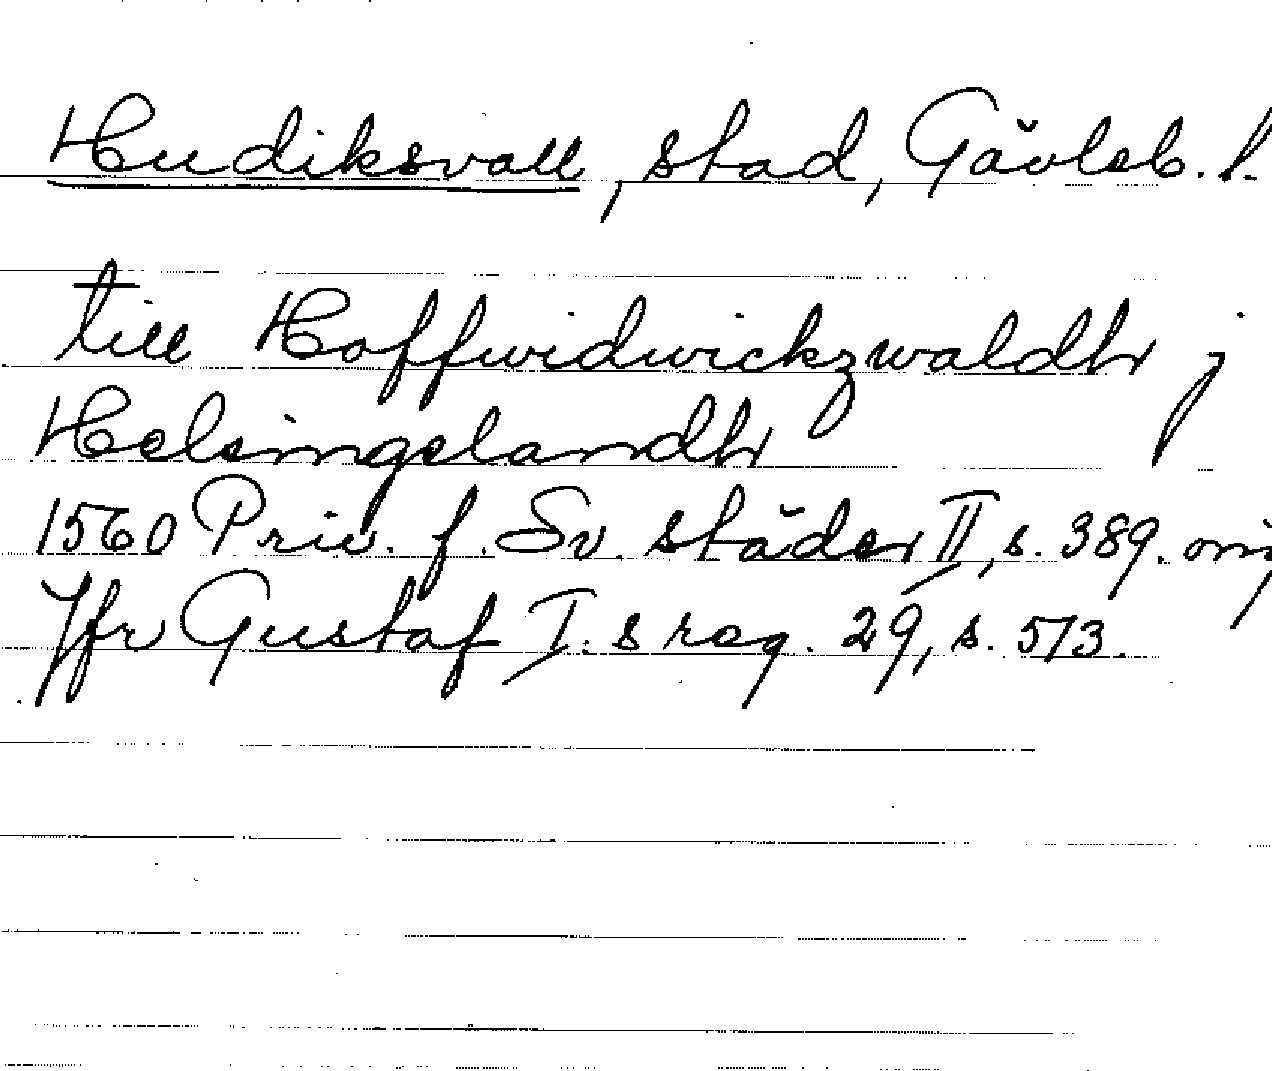 Hudiksvall, stad, Gävleb. l.
till Hoffwidwickzwaldh j
Helsingelandh
1560 Priv. f. Sv. städer II, s. 389. orig
Jfr Gustaf I:s reg. 29, s. 573.